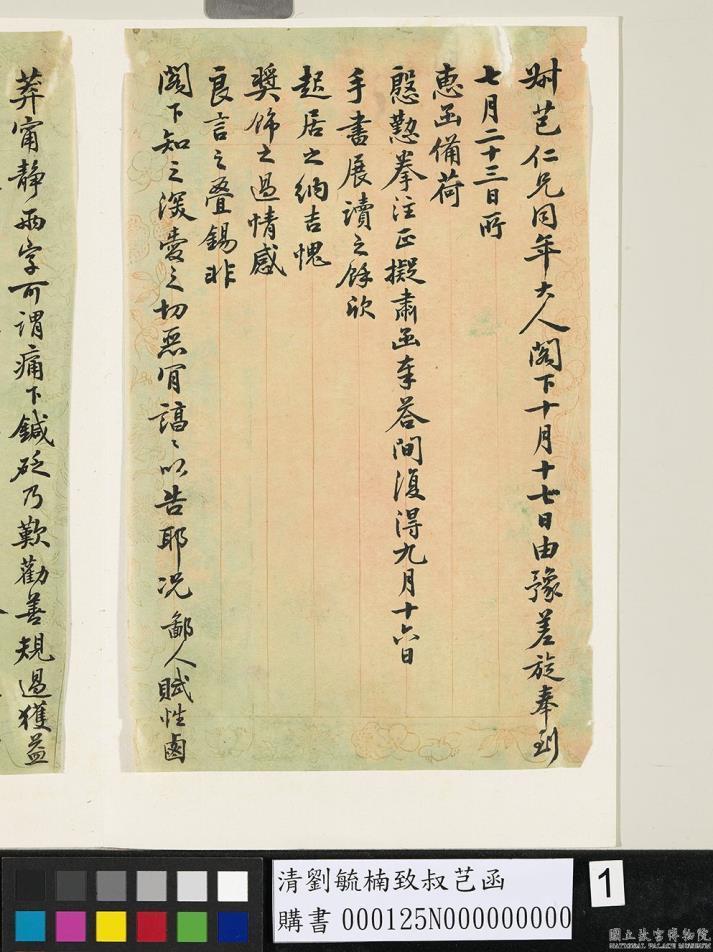 叔芑仁兄同年大人閣下十月十七日由豫差旋奉到
七月二十三日所
惠函備荷
慇懃拳注正擬肅函奉荅間復得九月十六日
手書展讀之餘欣
起居之納吉愧
獎飾之過情感
良言之疊錫非
閣下知之深愛之切惡肎諄諄以告耶况鄙人賦性鹵
莽甯靜兩字可謂痛下鍼砭乃歎勸善規過獲益
清劉毓楠致叔芑函
購書 000125N000000000
1
國立故宮博物院
NATIONAL PALACE MUSEUM